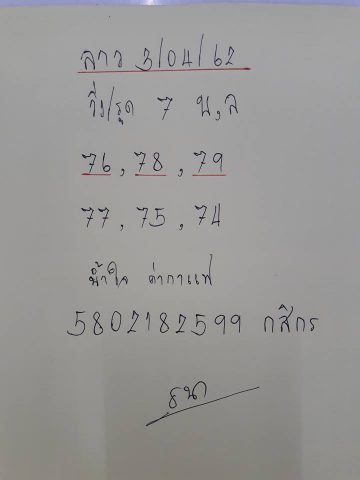 ลาว 3/04/62
วิ่ง/รูด 7 บ,ล
76, 78, 79
77, 75, 74
น้ำใจ ค่ากาแฟ
5802182599 กสิกร
ธนา